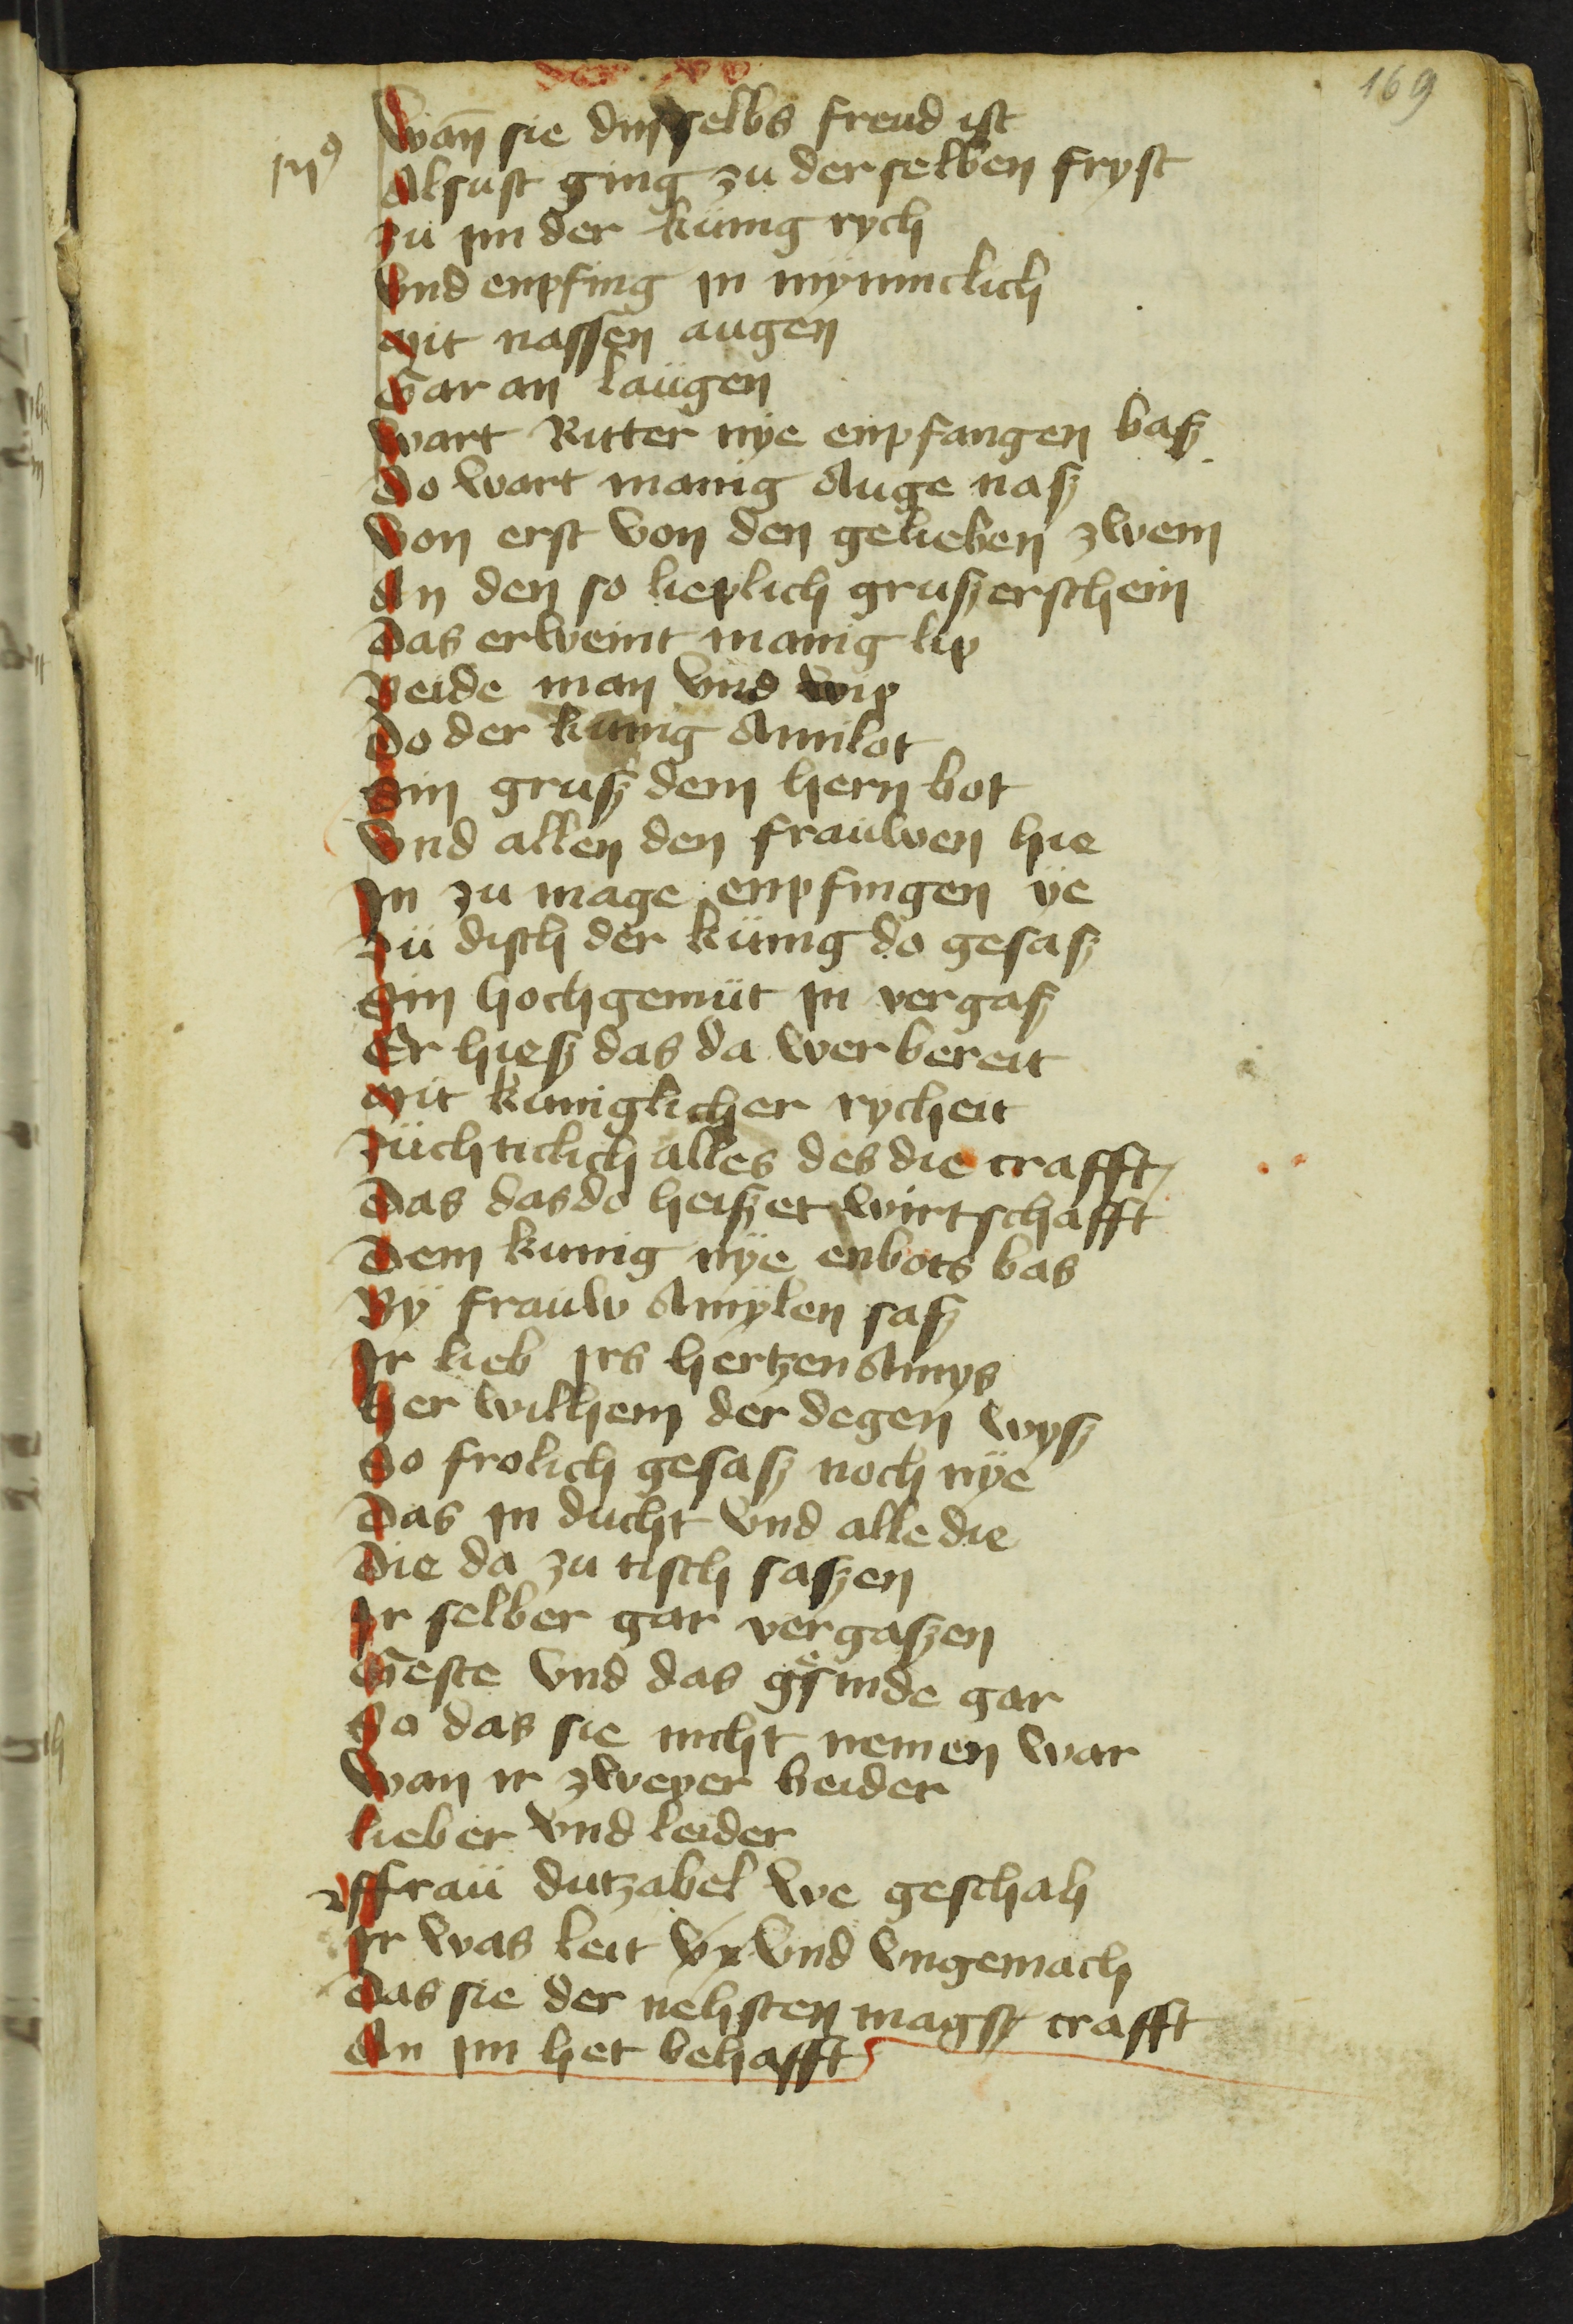 169
Wan̄ sie din selbs freud ist
Alsust ging zu der selben fryst
zu im der kunig rych
Vnd enpfing in mynnclich
Mit nassen augen
Gar an laugen
Wart Ritter nye enpfangen basz
Do wart manig Auge nasz
Von erst von den gelieben zwein
An den so lieplich grusz erschein
Das erweint manig lip
Beide man Vnd wip
Do der kunig Amilot
Sin grusz dem hern bot
Vnd allen den frauwen hie
In zu mage enpfingen ye
Zü disch der künig do gesasz
Sin hochgemüt in vergasz
Er hiesz das da wer bereit
Mit kuniglicher rycheit
züchticlich alles des die crafft
Das das do heiszet wirtschafft
Dem kunig nye enbots bas
By frauw Amylen sasz
Ir lieb irs hertzen Amys
Her wilhem der degen wysz
So frolich gesasz noch nye
Das in ducht vnd alle die
Die da zu tisch saszen
Ir selber gar vergaszen
Geste vnd das gesinde gar
So das sie nicht nemen war
Wan ir zweyer beider
lieber Vnd leider
ffraü dutzabel we geschah
Ir was leit Vnd vngemach
Das sie der nehsten magst crafft
An im het behafft